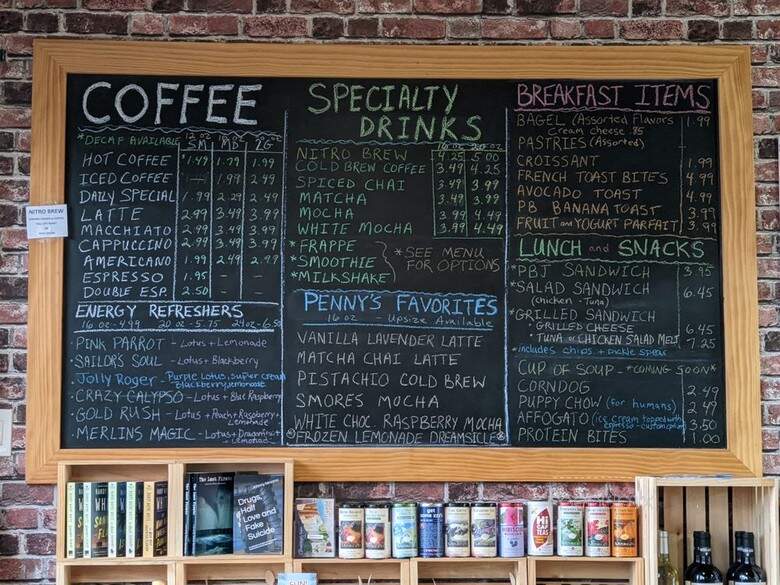 COFFEE
*DECAF AVAILABLE
12 oz 16 oz 20 oz
SM MD LG
HOT COFFEE 1.49 1.79 1.99
ICED COFFEE — 1.99 2.49
DAILY SPECIAL 1.99 2.29 2.49
LATTE 2.99 3.49 3.99
MACCHIATO 2.99 3.49 3.99
CAPPUCCINO 2.99 3.49 3.99
AMERICANO 1.99 2.49 2.99
ESPRESSO 1.95
DOUBLE ESP. 2.50
ENERGY REFRESHERS
16 oz - 4.99 20 oz - 5.75 24 oz - 6.50
PINK PARROT - Lotus + Lemonade
SAILOR'S SOUL - Lotus + Blackberry
Jolly Roger - Purple Lotus, super cream
Blackberry, lemonade
CRAZY CALYPSO - Lotus + Blue Raspberry
GOLD RUSH - Lotus + Peach + Raspberry +
Lemonade
MERLINS MAGIC - Lotus + Dragonfruit +
Lemonade
SPECIALTY
DRINKS
16 oz 20 oz
NITRO BREW 4.25 5.00
COLD BREW COFFEE 3.49 4.25
SPICED CHAI 3.49 3.99
MATCHA 3.49 3.99
MOCHA 3.99 4.49
WHITE MOCHA 3.99 4.49
* FRAPPE
* SMOOTHIE
* MILKSHAKE
* SEE MENU
FOR OPTIONS
PENNY'S FAVORITES
16 oz - Upsize Available
VANILLA LAVENDER LATTE
MATCHA CHAI LATTE
PISTACHIO COLD BREW
SMORES MOCHA
WHITE CHOC. RASPBERRY MOCHA
FROZEN LEMONADE DREAMSICLE
BREAKFAST ITEMS
BAGEL (Assorted Flavors 1.99
Cream cheese .85
PASTRIES (Assorted)
CROISSANT 1.99
FRENCH TOAST BITES 4.99
AVOCADO TOAST 4.99
PB BANANA TOAST 3.99
FRUIT and YOGURT PARFAIT 3.99
LUNCH and SNACKS
*PBJ SANDWICH 3.95
*SALAD SANDWICH 6.45
(chicken - Tuna)
*GRILLED SANDWICH
· GRILLED CHEESE 6.45
· TUNA or CHICKEN SALAD MELT 7.25
*includes chips + pickle spear
CUP OF SOUP - *COMING SOON*
CORNDOG 2.49
PUPPY CHOW (for humans) 2.49
AFFOGATO (ice cream topped with 3.50
espresso - custom option)
PROTEIN BITES 1.00
NITRO BREW
The Lost Pirate
Drugs,
Hall
Love and
Fake
Suicide
HI
TEAS